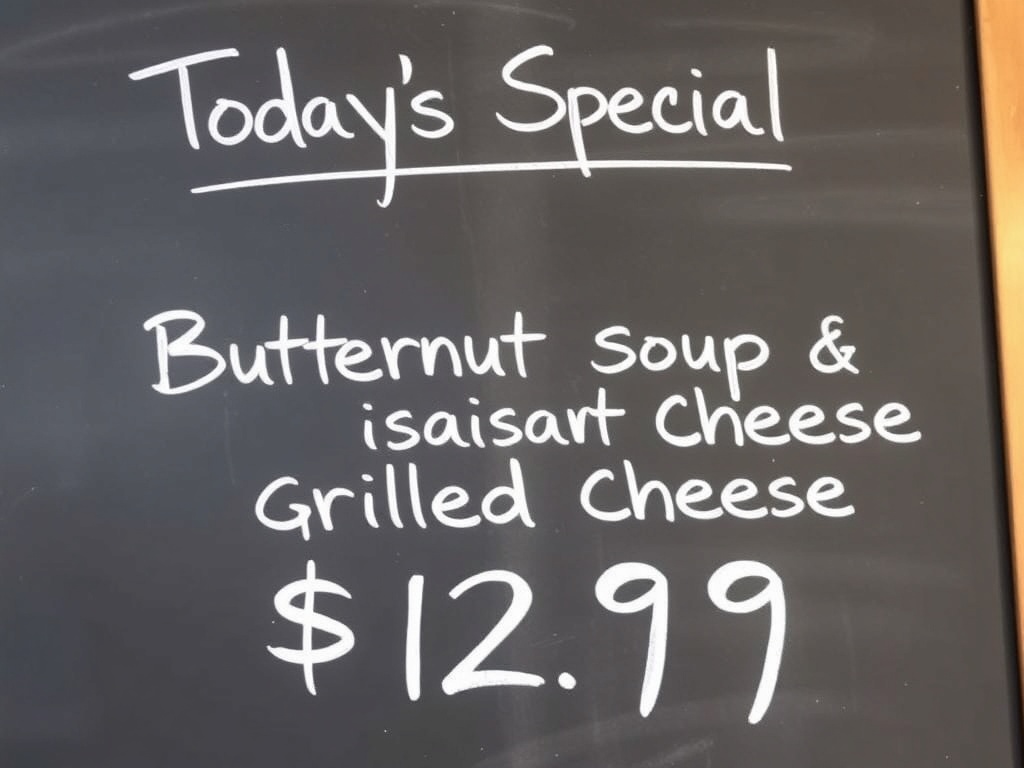 Today's Special
Butternut soup &
isaisart Cheese
Grilled Cheese
$12.99